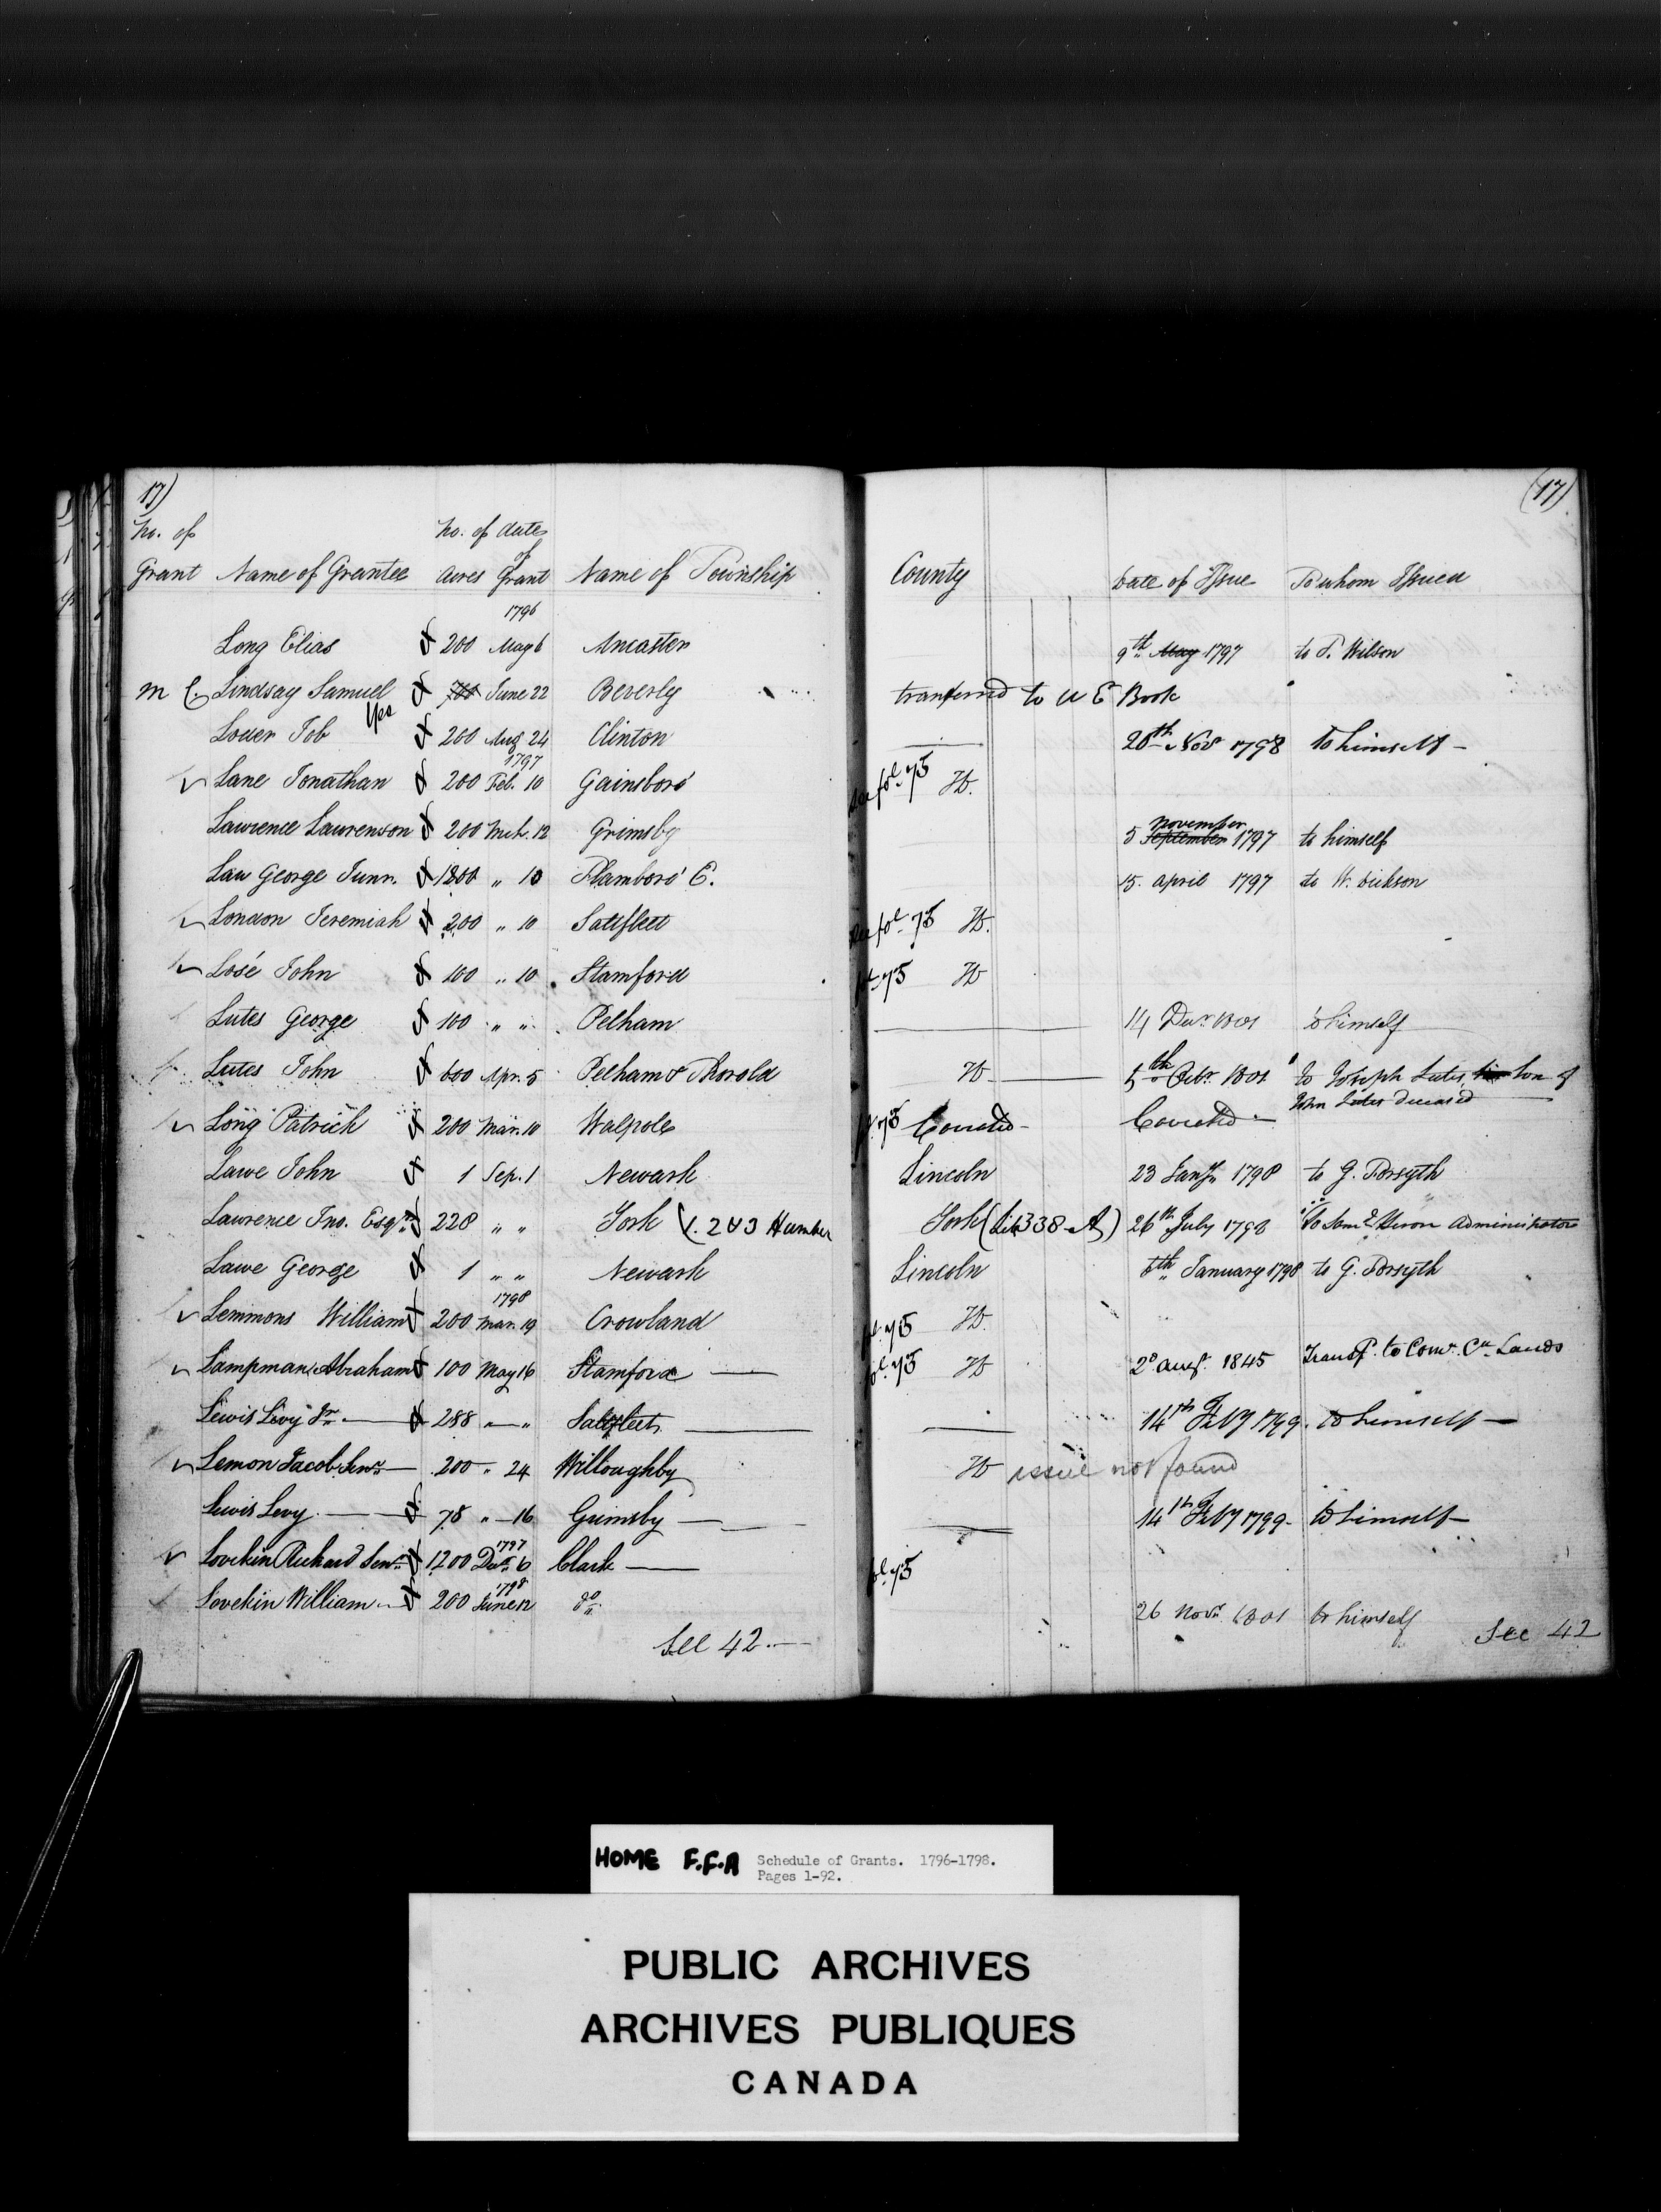 17) (17)
No. of No. of date
of
Grant Name of Grantee Acres Grant Name of Township County Date of Issue To whom Issued
1796
Long Elias 200 May 6 Ancaster 9th May 1797 to T. Wilson
m Lindsay Samuel June 22 Beverly tranferred to U E Book
Yes
Loder Job 200 Aug 24 Clinton 20th Novr 1798 to himself -
1797
Lane Jonathan 200 Feb. 10 Gainsboro' see fol. 75 H.
november
Lawrence Laurenson 200 Mch. 12 Grimsby 5 September 1797 to himself
Law George Junr. 1200 " 10 Flamboro' E. 15. april 1797 to W. Dickson
London Jeremiah 200 " 10 Saltfleet see fol. 75 H.
Losé John 100 " 10 Stamford fol. 75 H
Lutes George 100 " " Pelham 14 Decr. 1801 to himself
Lutes John 600 Apr. 5 Pelham & Thorold H. 5th Octr. 1801 to Joseph Lutes, his Son of
John Lutes deceased
Long Patrick 200 Mar. 10 Walpole fol. 75
Lawe John 1 Sep. 1 Newark Lincoln 23 Jany. 1798 to G. Forsyth
Lawrence Jno. Esqr. 228 " " York (1. 2 & 3 Humber York (Lib 338 A) 26th July 1798 to Saml. Heron Administrator
Lawe George 1 " " Newark Lincoln 5th January 1798 to G. Forsyth
1798
Lemmons William 200 Mar. 19 Crowland fol. 75 H.
Lampman Abraham 100 May 16 Stamford fol. 75 H 2d augt. 1845 Transf. to Comr. Cn. Lands
Lewis Levy Jr. 288 " " Saltfleet 14th Feby 1799. to himself
Lemon Jacob Senr. 200 " 24 Willoughby H issue not found
Lewis Levy 78 " 16 Grimsby 14th Feby 1799 - to himself
1797
Lovekin Richard Senr. 1200 Decr. 6 Clark fol. 75
1798
Lovekin William 200 June 12 do. 26 Novr. 1801 to himself
See 42 See 42
HOME F.F.A Schedule of Grants. 1796-1798.
Pages 1-92.
PUBLIC ARCHIVES
ARCHIVES PUBLIQUES
CANADA